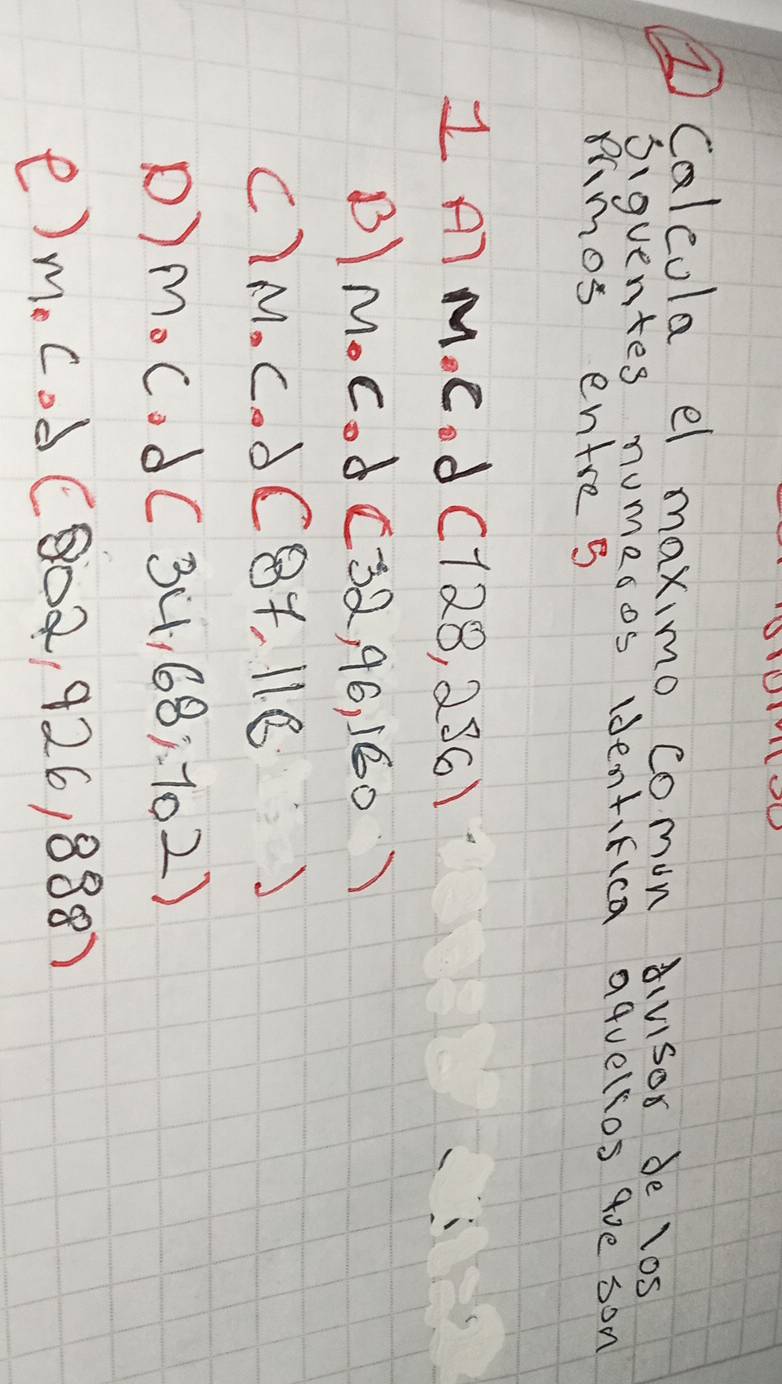 1 Calcula el maximo comun divisor de los
siguentes numeros identifica aquellos que son
primos entre 5
1 A) M.C.d (128, 256)
B) M.C.d (32, 96, 160)
C) M.C.d (87, 116)
D) M.C.d (34, 68, 102)
e) M.C.d (802, 926, 888)